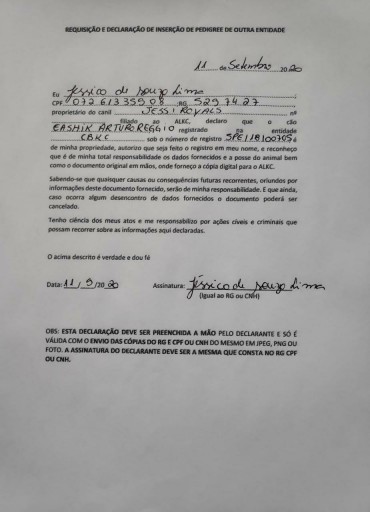 REQUISIÇÃO E DECLARAÇÃO DE INSERÇÃO DE PEDIGREE DE OUTRA ENTIDADE
11 de Setembro 2020
Eu Jéssica de Souza Lima
CPF 07261335908 RG 5297427
proprietário do canil JESSI ROYALS nº
filiado ao ALKC, declaro que o cão
CASHIK ARTURO REGGIO registrado na entidade
CBKC sob o número de registro SPE118100705 é
de minha propriedade, autorizo que seja feito o registro em meu nome, e reconheço
que é de minha total responsabilidade os dados fornecidos e a posso do animal bem
como o documento original em mãos, onde forneço a cópia digital para o ALKC.
Sabendo-se que quaisquer causas ou consequências futuras recorrentes, oriundos por
informações deste documento fornecido, serão de minha responsabilidade. E que ainda,
caso ocorra algum desencontro de dados fornecidos o documento poderá ser
cancelado.
Tenho ciência dos meus atos e me responsabilizo por ações cíveis e criminais que
possam recorrer sobre as informações aqui declaradas.
O acima descrito é verdade e dou fé
Data: 11 / 9 /2020 Assinatura: Jéssica de Souza Lima
(Igual ao RG ou CNH)
OBS: ESTA DECLARAÇÃO DEVE SER PREENCHIDA A MÃO PELO DECLARANTE E SÓ É
VÁLIDA COM O ENVIO DAS CÓPIAS DO RG E CPF OU CNH DO MESMO EM JPEG, PNG OU
FOTO. A ASSINATURA DO DECLARANTE DEVE SER A MESMA QUE CONSTA NO RG CPF
OU CNH.